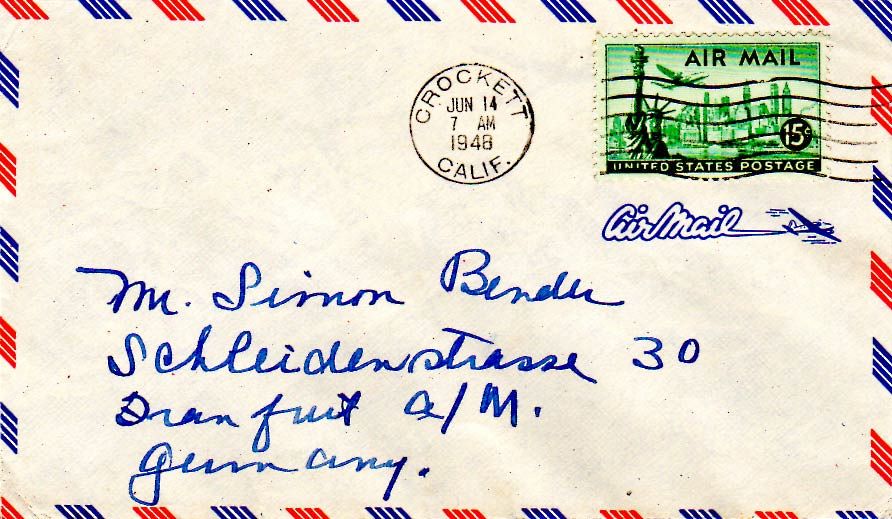 CROCKETT
JUN 14
7 AM
1948
CALIF.
AIR MAIL
15¢
UNITED STATES POSTAGE
Air Mail
Mr. Simon Bender
Schleidenstrasse 30
Frankfurt a/M.
Germany.